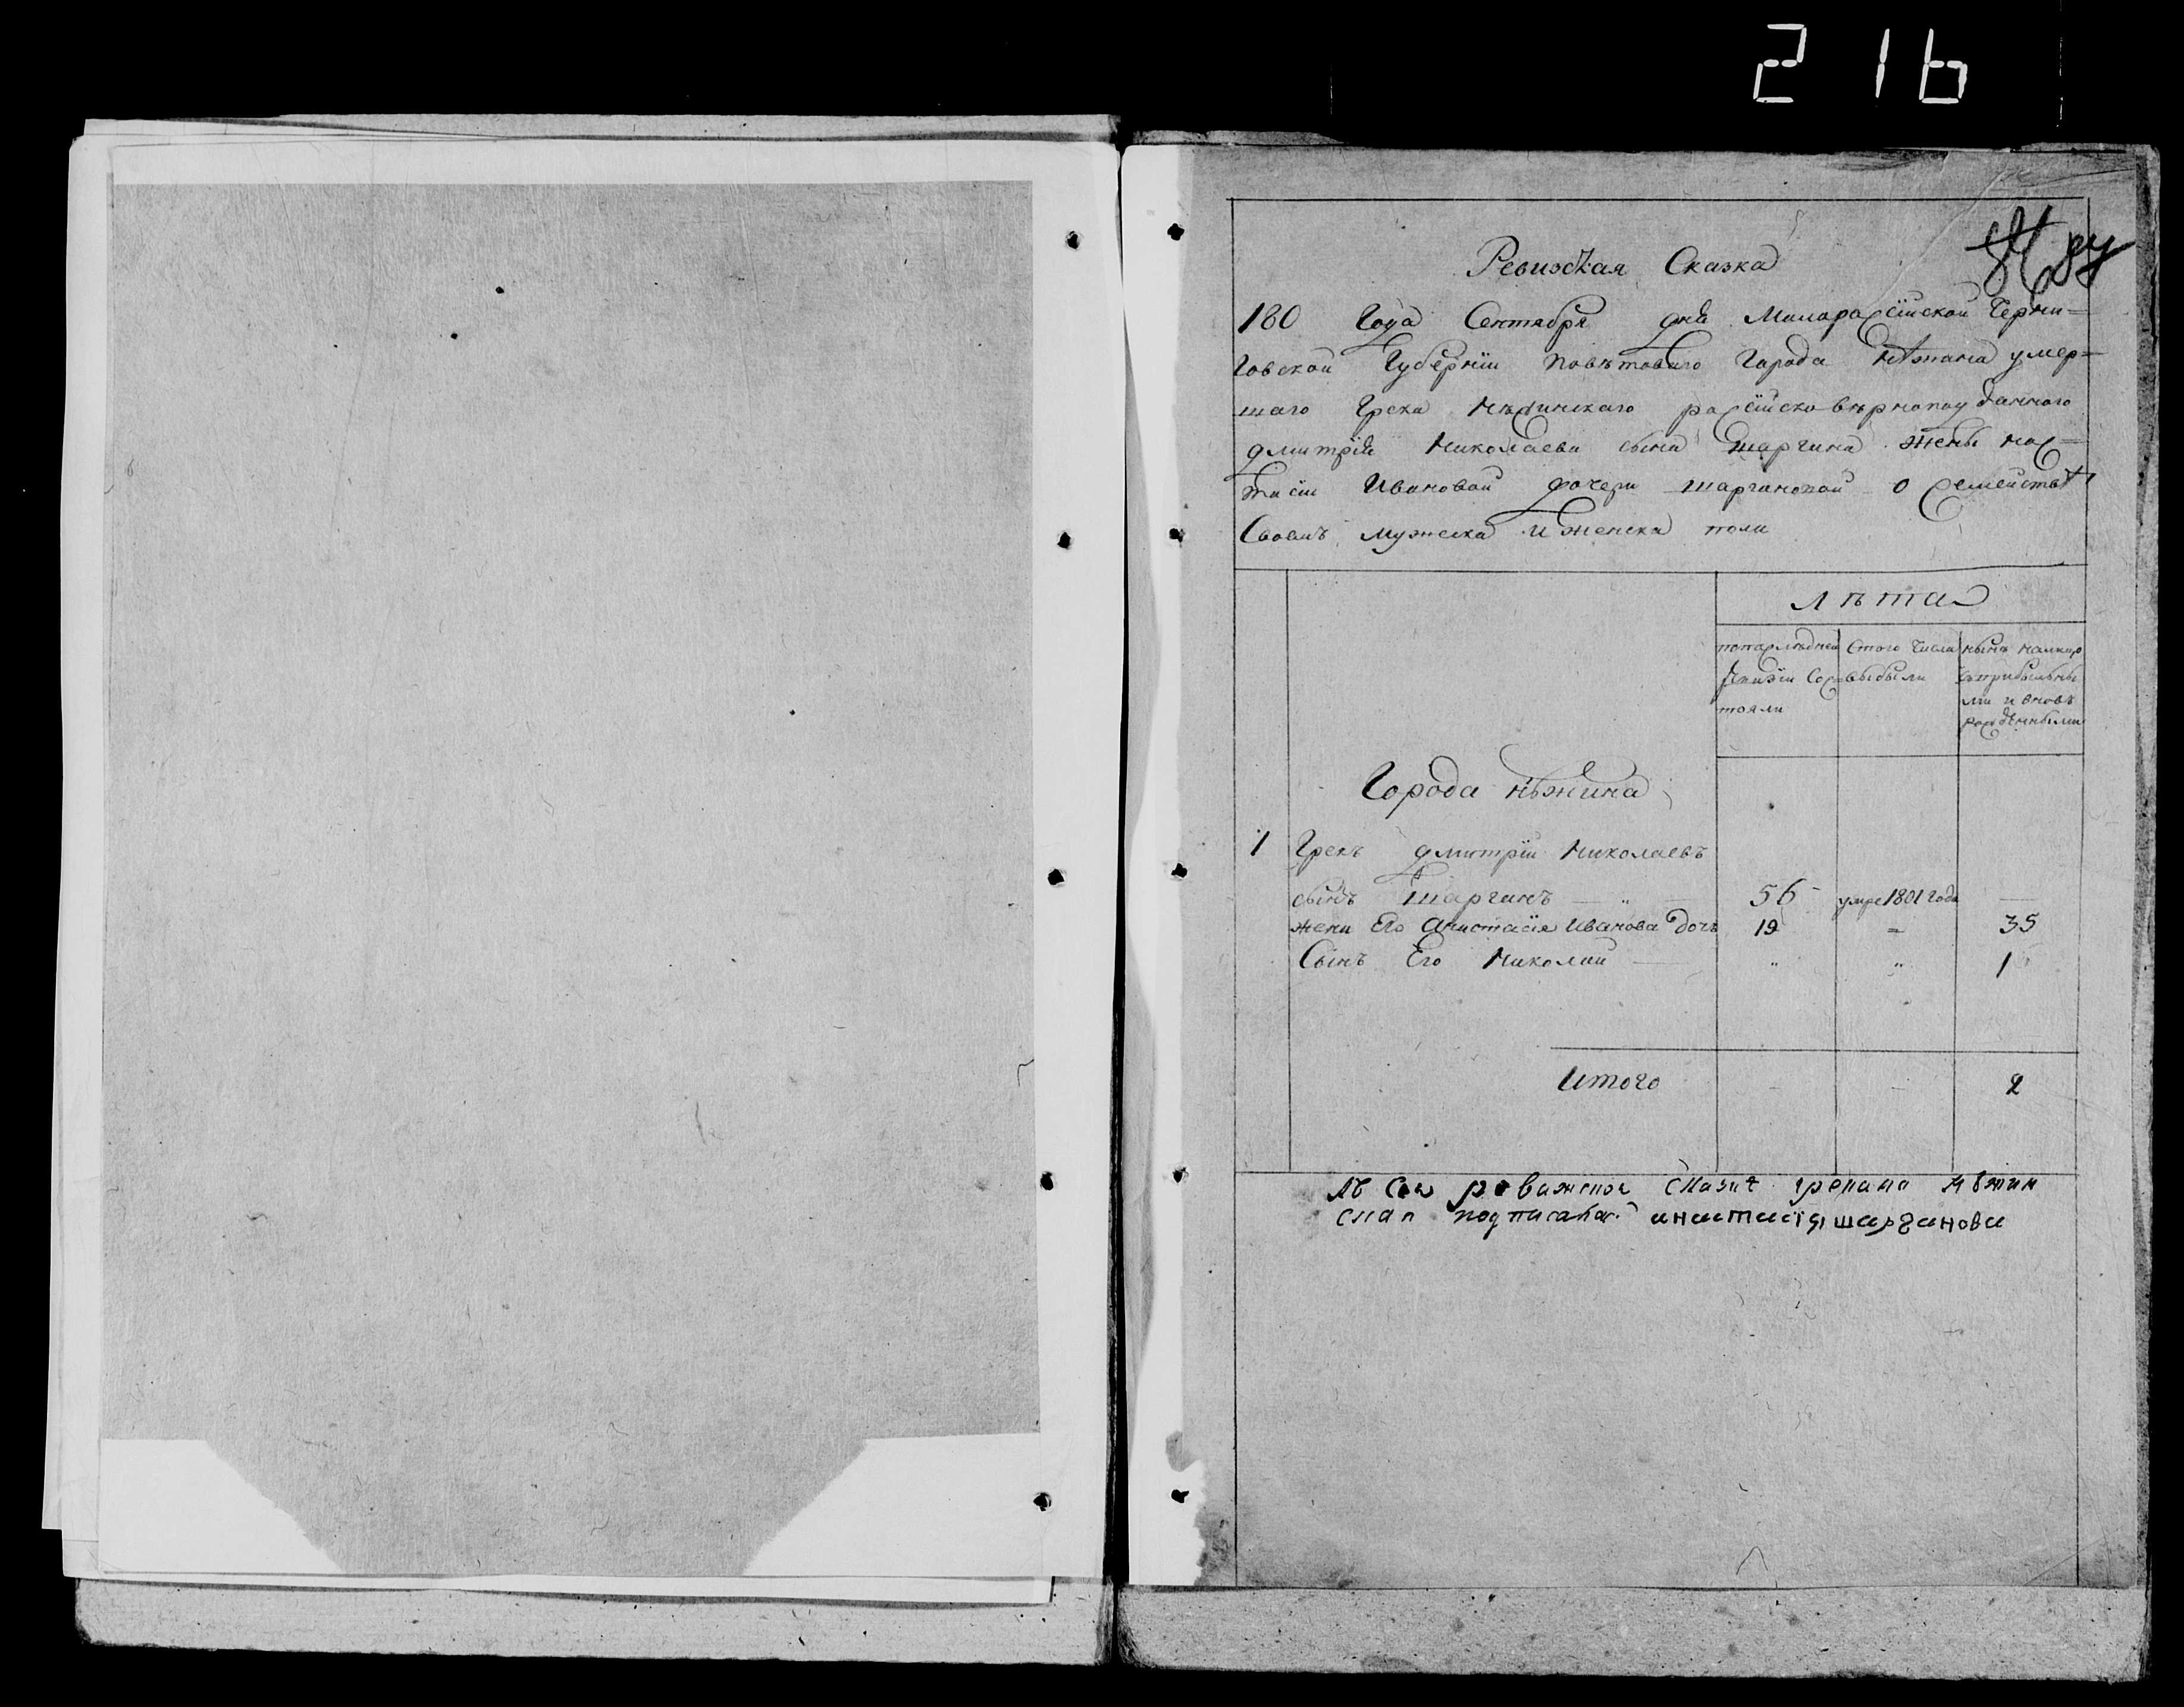 216
Ревизская Сказка
180 Года Сентября дня Малороссійской Черни=
говской Губерніи повѣтоваго Города Нѣжина умер=
шаго Грека Нѣжинскаго россійско вѣрноподданного
дмитрія Николаева сына Шаргина жены нас=
тасіи Ивановой дочери шаргиновой о семействѣ
Своемъ мужеска и женска пола
лѣта
попослѣдней ревизіи Состояли
Стого Числа выбыли
нынѣ налицо съприбылыми и вновь рожденными
Города нѣжина
1 Грекъ дмитрій Николаевъ
сынъ Шаргинъ — „ 56 умре 1801 Года —
жена Его Анастасія Иванова дочь 19 = 35
Сынъ Его Николай — „ „ 1
Итого - - 2
Къ Сей сказкѣ нѣжин
ская подписалась анастасія шаргинова